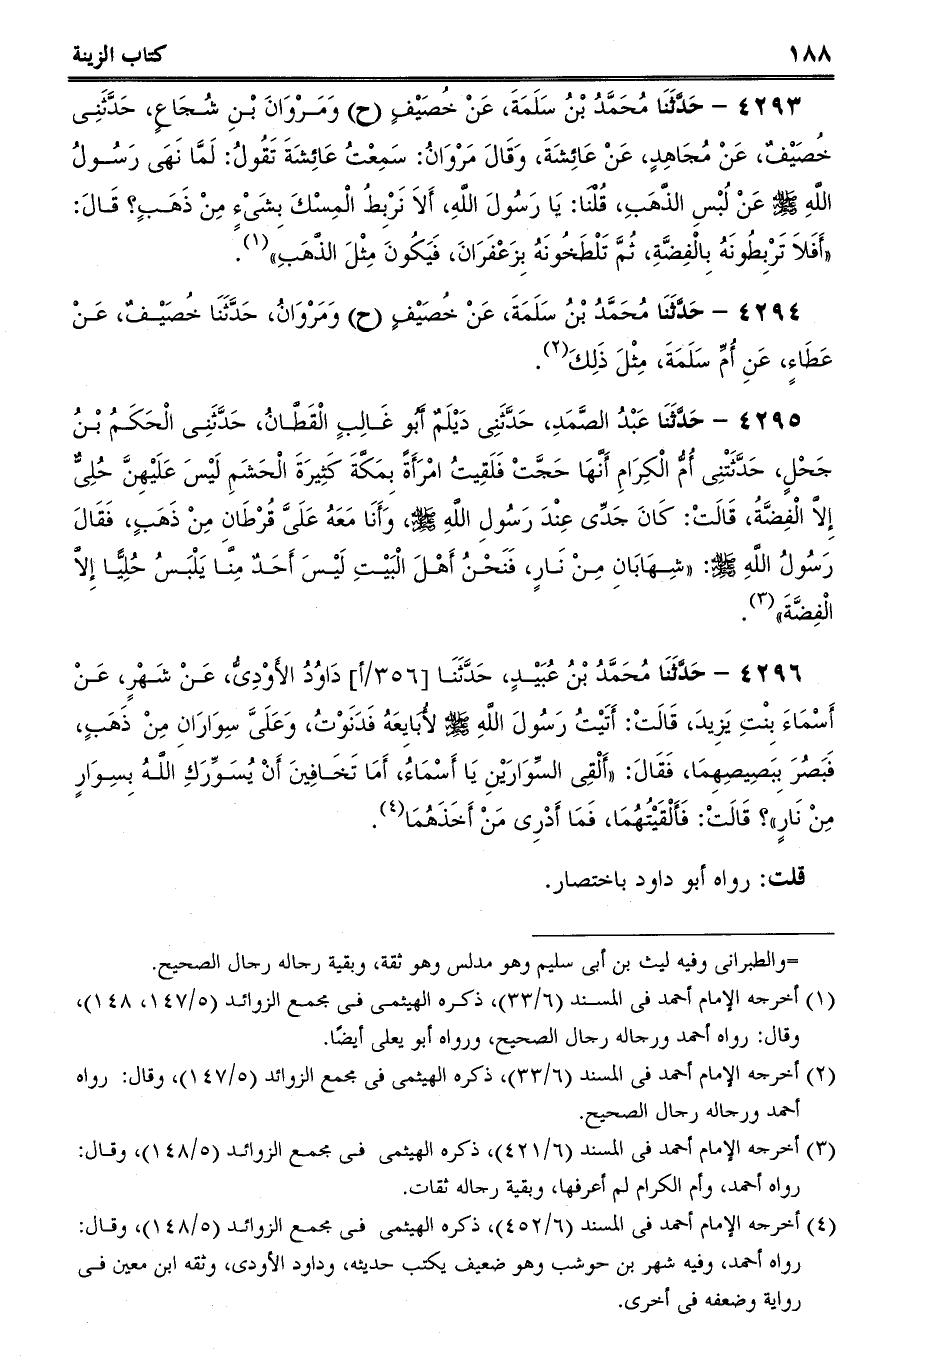 ١٨٨
كتاب الزينة
٤٢٩٣ – حَدَّثَنَا مُحَمَّدُ بْنُ سَلَمَةَ، عَنْ خُصَيْفٍ (ح) وَمَرْوَانَ بْنِ شُجَاعٍ، حَدَّثَنِى
خُصَيْفٌ، عَنْ مُجَاهِدٍ، عَنْ عَائِشَةَ، وَقَالَ مَرْوَانُ: سَمِعْتُ عَائِشَةَ تَقُولُ: لَمَّا نَهَى رَسُولُ
اللَّهِ ﷺ عَنْ لُبْسِ الذَّهَبِ، قُلْنَا: يَا رَسُولَ اللَّهِ، أَلاَ نَرْبِطُ الْمِسْكَ بِشَىْءٍ مِنْ ذَهَبٍ؟ قَالَ:
«أَفَلاَ تَرْبِطُونَهُ بِالْفِضَّةِ، ثُمَّ تَلْطَخُونَهُ بِزَعْفَرَانَ، فَيَكُونَ مِثْلَ الذَّهَبِ»(١).
٤٢٩٤ – حَدَّثَنَا مُحَمَّدُ بْنُ سَلَمَةَ، عَنْ خُصَيْفٍ (ح) وَمَرْوَانُ، حَدَّثَنَا خُصَيْفٌ، عَنْ
عَطَاءٍ، عَنِ أُمِّ سَلَمَةَ، مِثْلَ ذَلِكَ(٢).
٤٢٩٥ – حَدَّثَنَا عَبْدُ الصَّمَدِ، حَدَّثَنِى دَيْلَمٌ أَبُو غَالِبٍ الْقَطَّانُ، حَدَّثَنِى الْحَكَمُ بْنُ
جَحْلٍ، حَدَّثَتْنِى أُمُّ الْكِرَامِ أَنَّهَا حَجَّتْ فَلَقِيتُ امْرَأَةً بِمَكَّةَ كَثِيرَةَ الْحَشَمِ لَيْسَ عَلَيْهِنَّ حُلِىٌّ
إِلاَّ الْفِضَّةُ، قَالَتْ: كَانَ جَدِّى عِنْدَ رَسُولِ اللَّهِ ﷺ، وَأَنَا مَعَهُ عَلَىَّ قُرْطَانِ مِنْ ذَهَبٍ، فَقَالَ
رَسُولُ اللَّهِ ﷺ: «شِهَابَانِ مِنْ نَارٍ، فَنَحْنُ أَهْلَ الْبَيْتِ لَيْسَ أَحَدٌ مِنَّا يَلْبَسُ حُلِيًّا إِلاَّ
الْفِضَّةَ»(٣).
٤٢٩٦ – حَدَّثَنَا مُحَمَّدُ بْنُ عُبَيْدٍ، حَدَّثَنَا [٣٥٦/أ] دَاوُدُ الأَوْدِىُّ، عَنْ شَهْرٍ، عَنْ
أَسْمَاءَ بِنْتِ يَزِيدَ، قَالَتْ: أَتَيْتُ رَسُولَ اللَّهِ ﷺ لأُبَايِعَهُ فَدَنَوْتُ، وَعَلَىَّ سِوَارَانِ مِنْ ذَهَبٍ،
فَبَصُرَ بِبَصِيصِهِمَا، فَقَالَ: «أَلْقِى السِّوَارَيْنِ يَا أَسْمَاءُ، أَمَا تَخَافِينَ أَنْ يُسَوِّرَكِ اللَّهُ بِسِوَارٍ
مِنْ نَارٍ»؟ قَالَتْ: فَأَلْقَيْتُهُمَا، فَمَا أَدْرِى مَنْ أَخَذَهُمَا(٤).
قلت: رواه أبو داود باختصار.
=والطبرانى وفيه ليث بن أبى سليم وهو مدلس وهو ثقة، وبقية رجاله رجال الصحيح.
(١) أخرجه الإمام أحمد فى المسند (٣٣/٦)، ذكره الهيثمى فى مجمع الزوائد (١٤٧/٥، ١٤٨)،
وقال: رواه أحمد ورجاله رجال الصحيح، ورواه أبو يعلى أيضًا.
(٢) أخرجه الإمام أحمد فى المسند (٣٣/٦)، ذكره الهيثمى فى مجمع الزوائد (١٤٧/٥)، وقال: رواه
أحمد ورجاله رجال الصحيح.
(٣) أخرجه الإمام أحمد فى المسند (٤٢١/٦)، ذكره الهيثمى فى مجمع الزوائد (١٤٨/٥)، وقال:
رواه أحمد، وأم الكرام لم أعرفها، وبقية رجاله ثقات.
(٤) أخرجه الإمام أحمد فى المسند (٤٥٢/٦)، ذكره الهيثمى فى مجمع الزوائد (١٤٨/٥)، وقال:
رواه أحمد، وفيه شهر بن حوشب وهو ضعيف يكتب حديثه، وداود الأودى، وثقه ابن معين فى
رواية وضعفه فى أخرى.